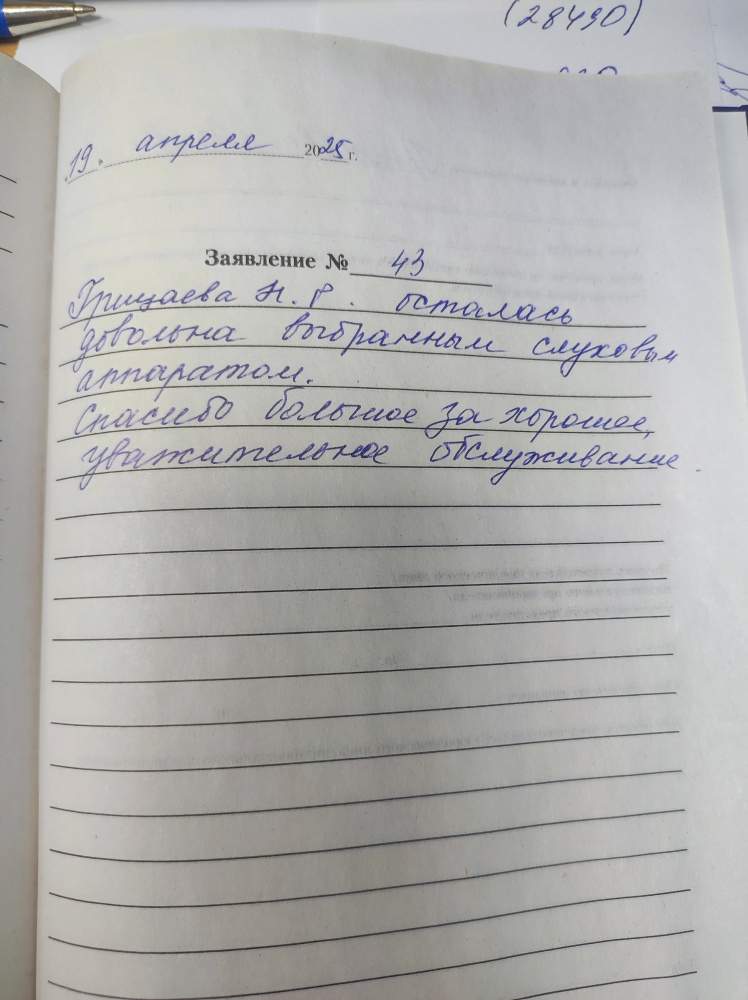 (28490)
19. апреля 2025 г.
Заявление № 43
Грицаева Н. Г. осталась
довольна выбранным слуховым
аппаратом.
Спасибо большое за хорошее,
уважительное обслуживание.